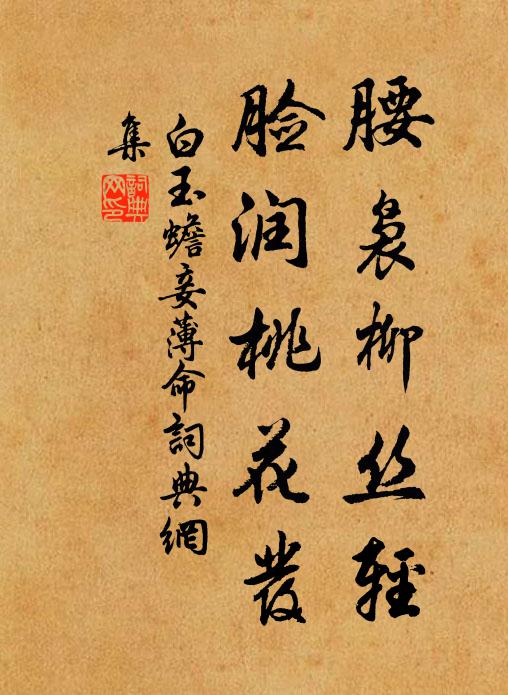 腰袅柳丝轻
脸润桃花發
白玉蟾妾薄命詞典網
集
詞典
网印